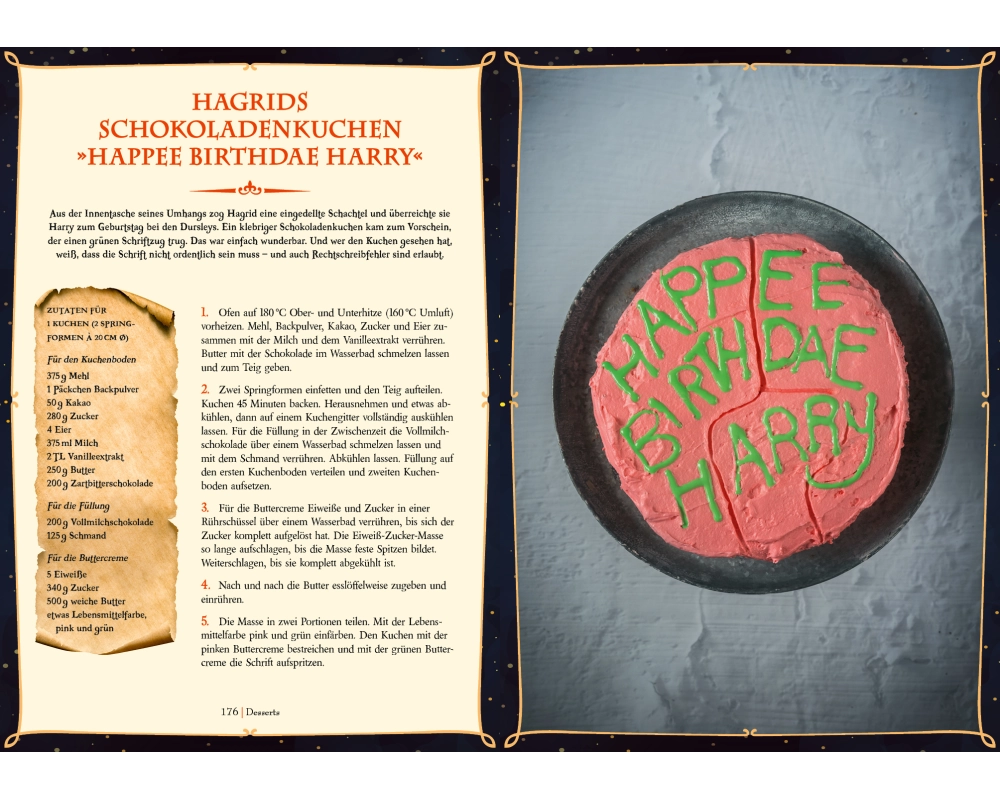 HAGRIDS
SCHOKOLADENKUCHEN
»HAPPEE BIRTHDAE HARRY«
Aus der Innentasche seines Umhangs zog Hagrid eine eingedellte Schachtel und überreichte sie
Harry zum Geburtstag bei den Dursleys. Ein klebriger Schokoladenkuchen kam zum Vorschein,
der einen grünen Schriftzug trug. Das war einfach wunderbar. Und wer den Kuchen gesehen hat,
weiß, dass die Schrift nicht ordentlich sein muss – und auch Rechtschreibfehler sind erlaubt.
ZUTATEN FÜR
1 KUCHEN (2 SPRING-
FORMEN À 20 CM Ø)
Für den Kuchenboden
375 g Mehl
1 Päckchen Backpulver
50 g Kakao
280 g Zucker
4 Eier
375 ml Milch
2 TL Vanilleextrakt
250 g Butter
200 g Zartbitterschokolade
Für die Füllung
200 g Vollmilchschokolade
125 g Schmand
Für die Buttercreme
5 Eiweiße
340 g Zucker
500 g weiche Butter
etwas Lebensmittelfarbe,
pink und grün
1. Ofen auf 180 °C Ober- und Unterhitze (160 °C Umluft)
vorheizen. Mehl, Backpulver, Kakao, Zucker und Eier zu-
sammen mit der Milch und dem Vanilleextrakt verrühren.
Butter mit der Schokolade im Wasserbad schmelzen lassen
und zum Teig geben.
2. Zwei Springformen einfetten und den Teig aufteilen.
Kuchen 45 Minuten backen. Herausnehmen und etwas ab-
kühlen, dann auf einem Kuchengitter vollständig auskühlen
lassen. Für die Füllung in der Zwischenzeit die Vollmilch-
schokolade über einem Wasserbad schmelzen lassen und
mit dem Schmand verrühren. Abkühlen lassen. Füllung auf
den ersten Kuchenboden verteilen und zweiten Kuchen-
boden aufsetzen.
3. Für die Buttercreme Eiweiße und Zucker in einer
Rührschüssel über einem Wasserbad verrühren, bis sich der
Zucker komplett aufgelöst hat. Die Eiweiß-Zucker-Masse
so lange aufschlagen, bis die Masse feste Spitzen bildet.
Weiterschlagen, bis sie komplett abgekühlt ist.
4. Nach und nach die Butter esslöffelweise zugeben und
einrühren.
5. Die Masse in zwei Portionen teilen. Mit der Lebens-
mittelfarbe pink und grün einfärben. Den Kuchen mit der
pinken Buttercreme bestreichen und mit der grünen Butter-
creme die Schrift aufspritzen.
176 | Desserts
HAPPEE
BIRTHDAE
HARRY